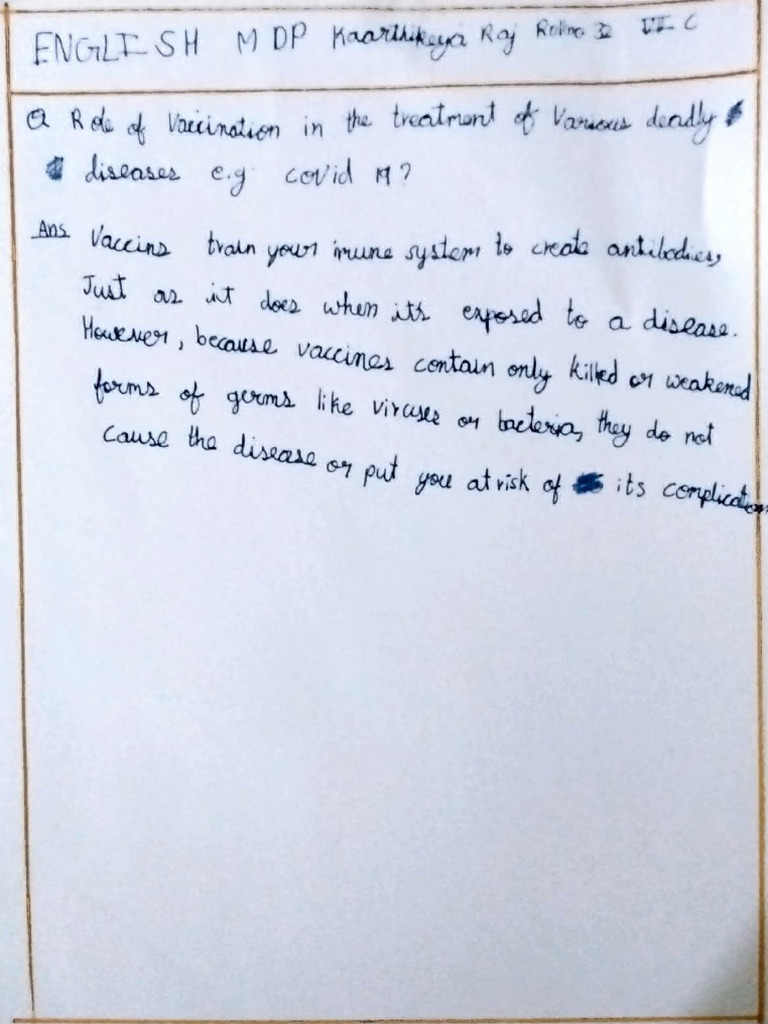 ENGLISH MDP Kaarthikeya Raj Rollno 32 VI C
Q Role of Vaccination in the treatment of Various deadly
diseases e.g covid 19?
Ans Vaccins train your imune system to create antibodies,
Just as it does when its exposed to a disease.
However, because vaccines contain only killed or weakened
forms of germs like viruses or bacteria, they do not
cause the disease or put you at risk of its complications